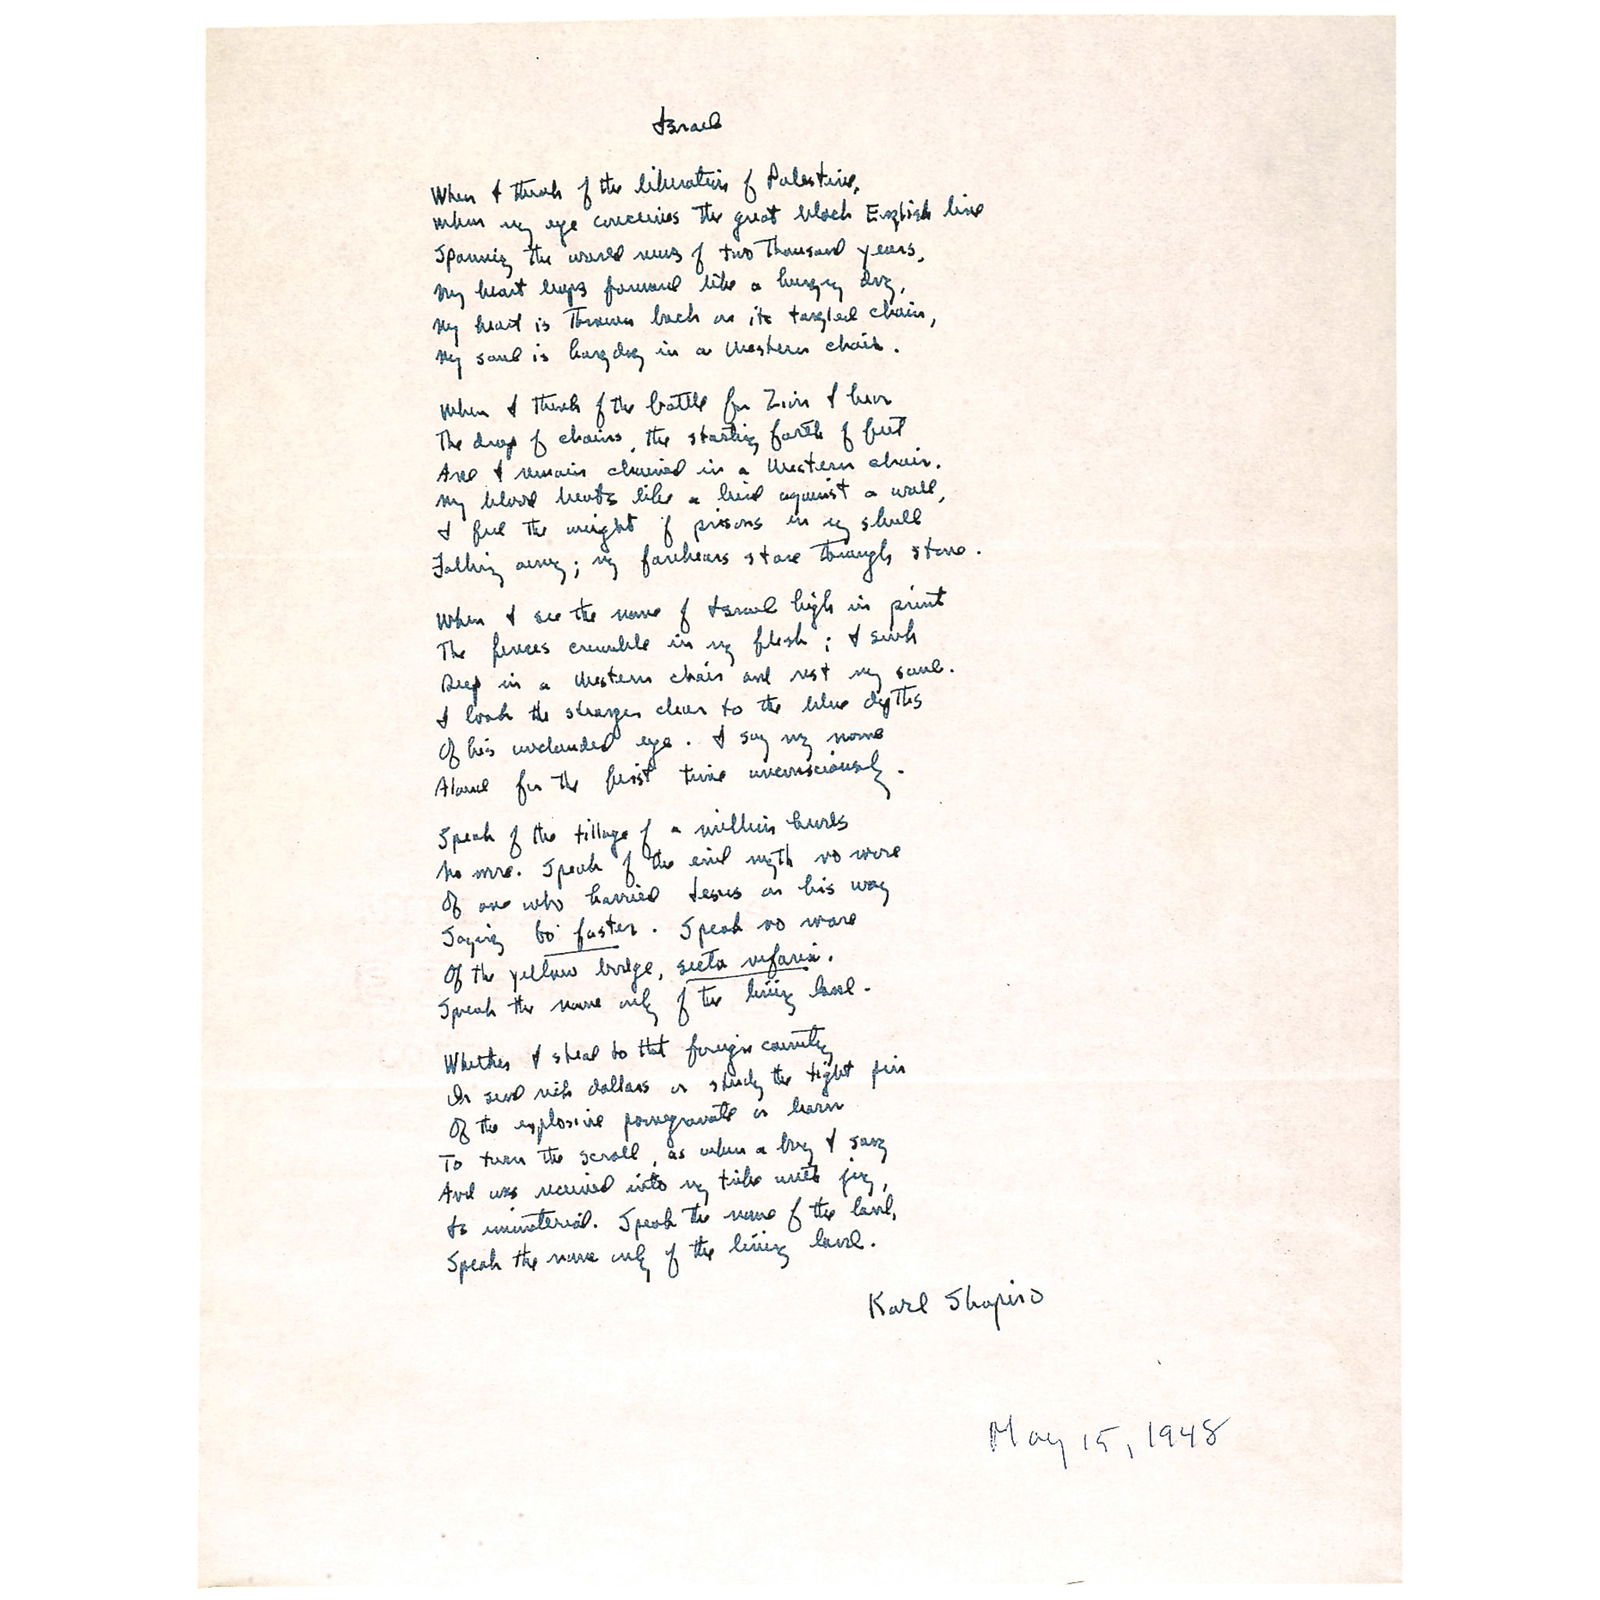 Israel
When I think of the liberation of Palestine,
When my eye conceives the great black English line
Spanning the world news of two thousand years,
My heart leaps forward like a hungry dog,
My heart is thrown back on its tangled chain,
My soul is hangdog in a Western chair.
When I think of the battle for Zion I hear
The drop of chains, the starting forth of feet
And I remain chained in a Western chair.
My blood beats like a bird against a wall,
I feel the weight of prisons in my skull
Falling away; my forebears stare through stone.
When I see the name of Israel high in print
The fences crumble in my flesh; I sink
Deep in a Western chair and rest my soul.
I look the stranger clear to the blue depths
Of his unclouded eye. I say my name
Aloud for the first time unconsciously.
Speak of the tillage of a million heads
No more. Speak of the evil myth no more
Of one who harried Jesus on his way
Saying Go faster. Speak no more
Of the yellow badge, secta nefaria.
Speak the name only of the living land.
Whether I steal to that foreign country
Or send rich dollars or study the tight pin
Of the explosive pomegranate or learn
To turn the scroll, as when a boy I sang
And was received into my tribe with joy,
Is immaterial. Speak the name of the land,
Speak the name only of the living land.
Karl Shapiro
May 15, 1948